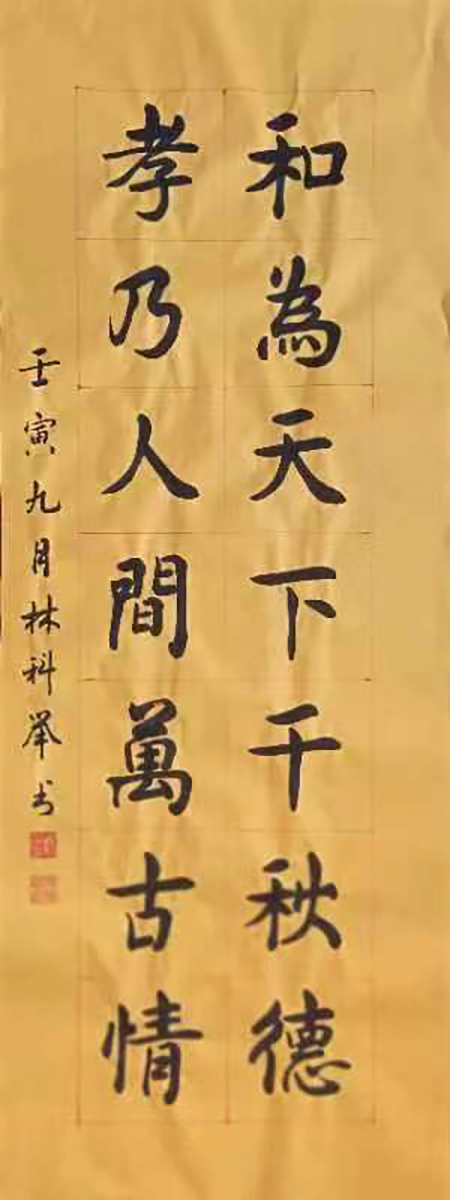 和為天下千秋德
孝乃人間萬古情
壬寅九月林科举书